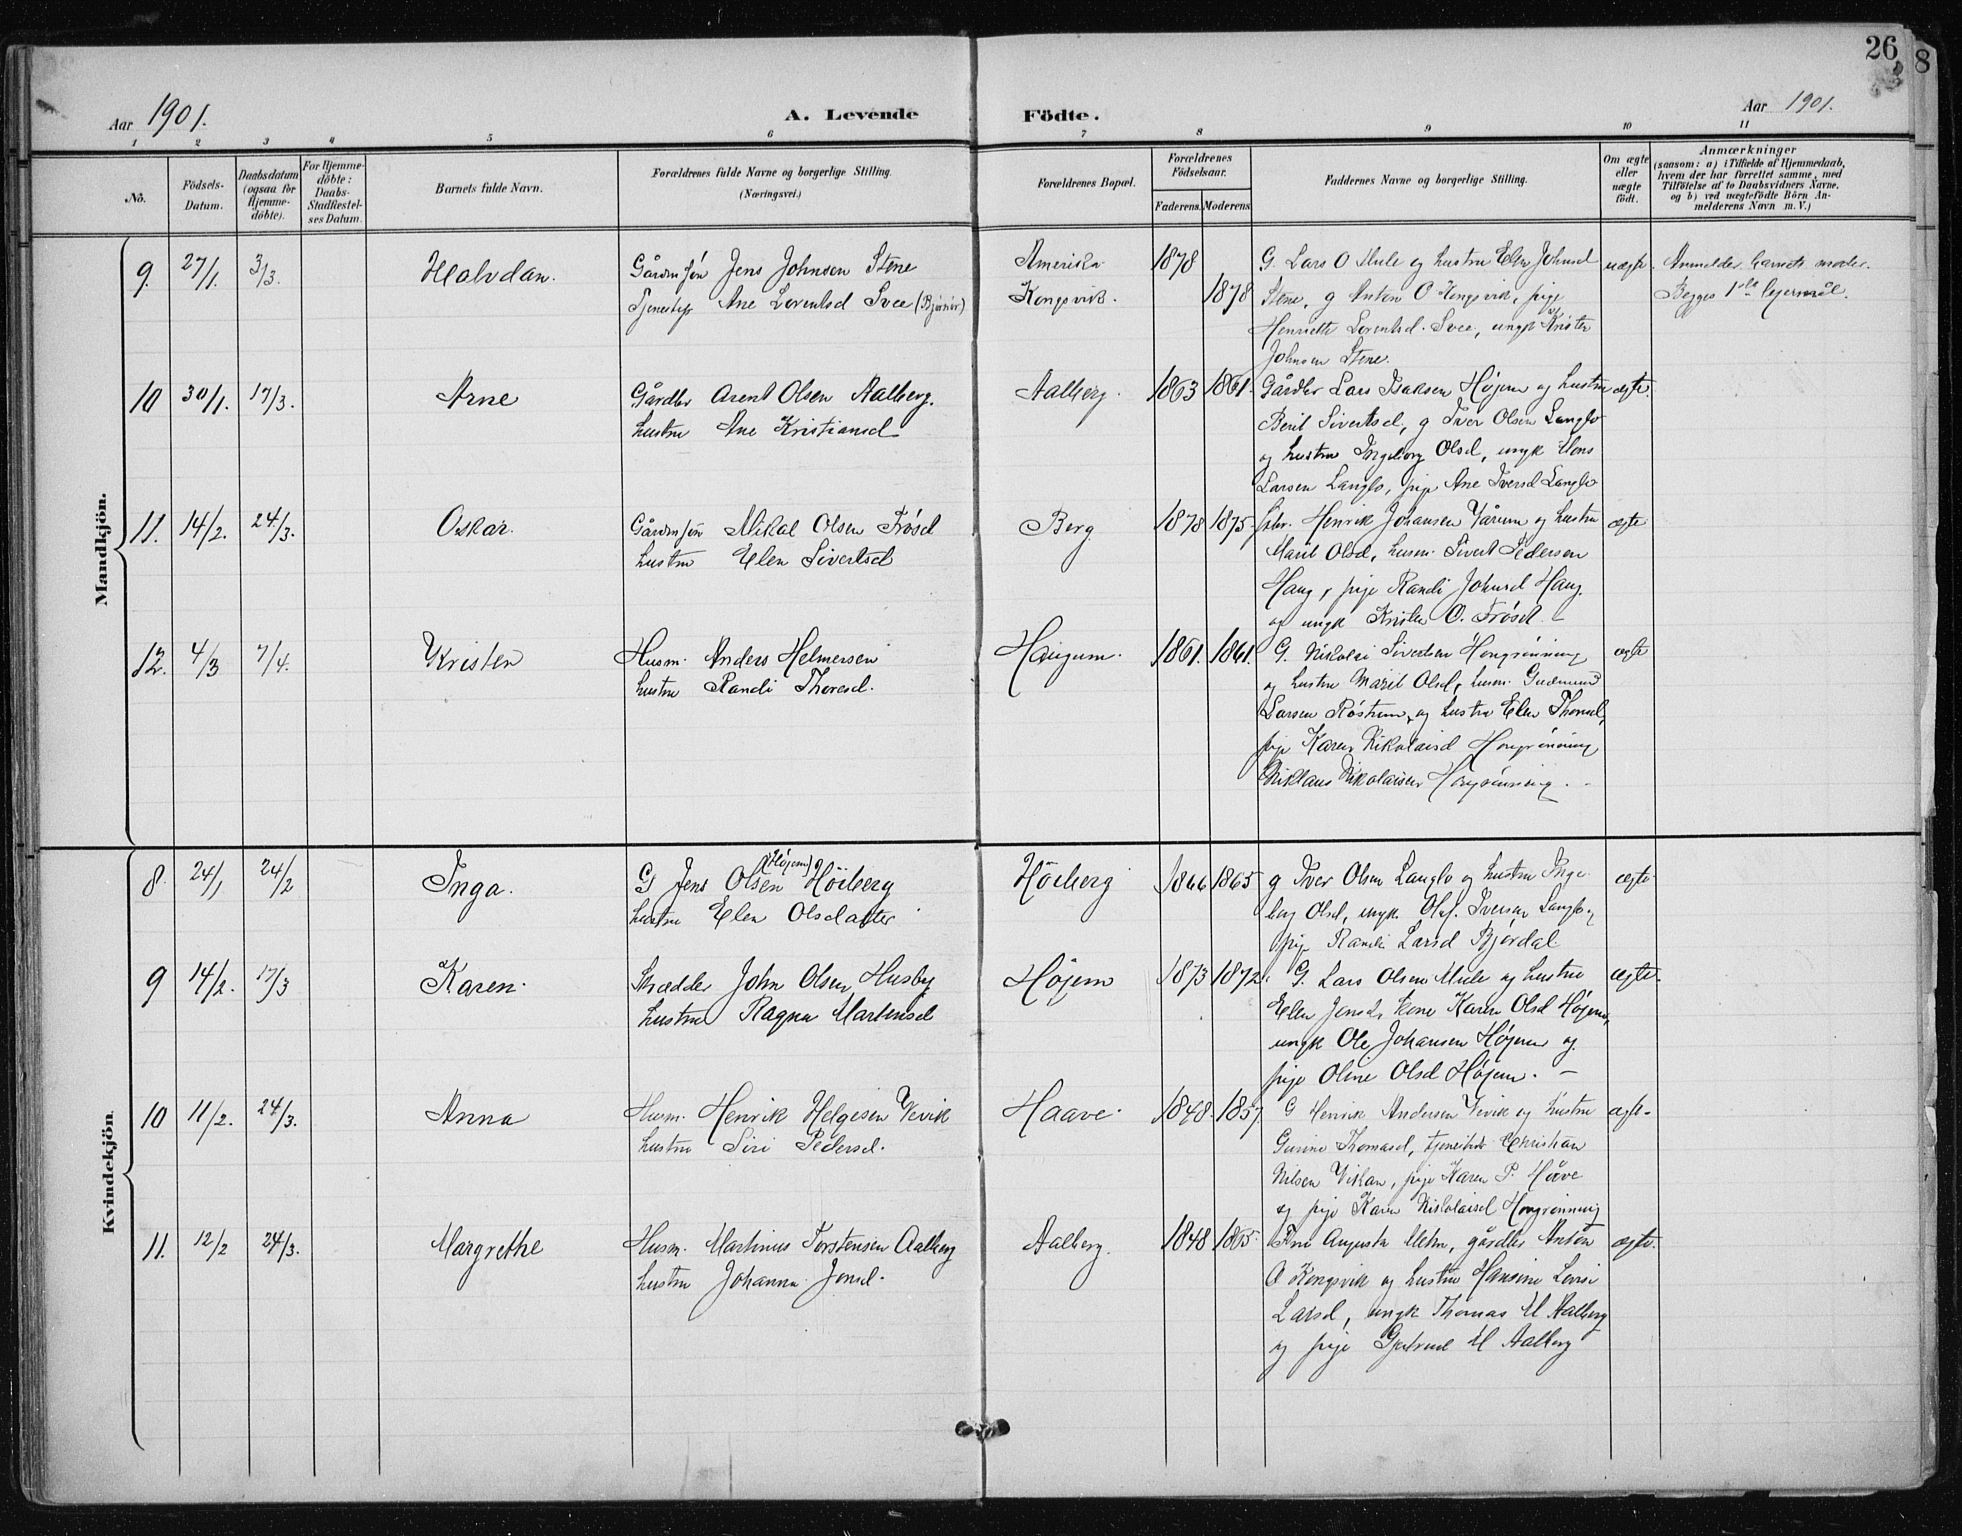 26
8
Aar 1901.
A. Levende
Födte.
Aar 1901.
1 2 3 4 5 6 7 8 9 10 11
No.
Födsels-
Datum.
Daabsdatum
(ogsaa for
Hjemme-
döbte).
For Hjemme-
döbte:
Daabs-
Stadfæstel-
ses Datum.
Barnets fulde Navn.
Forældrenes fulde Navne og borgerlige Stilling.
(Næringsvei.)
Forældrenes Bopæl.
Forældrenes
Födselsaar.
Faderens. Moderens.
Faddernes Navne og borgerlige Stilling.
Om ægte
eller
uægte
födt.
Anmærkninger
(saasom: a) i Tilfælde af Hjemmedaab,
hvem der har forrettet samme, med
Tilföielse af to Daabsvidners Navne,
og b) ved uægtefödte Börn An-
melderens Navn m. V.)
Mandkjön.
9. 27/1. 3/3. Halvdan.
Gårdmsøn Jens Johnsen Stene
Ane Lorentsd Svee (Bjørnør)
Amerika
Kongsvik.
1878
1878
G. Lars O Mule og hustru Elen Johnsd
Stene, g Anton O Kongsvik, pige
Henriette Lorentsd. Svee, ungk Krister
Johnsen Stene.
uægte.
Anmelder barnets moder.
Begges 1ste lejermål.
10 30/1. 17/3. Arne
Gårdbr Arent Olsen Aalberg.
hustru Ane Kristiansd
Aalberg. 1863 1861.
Gårdbr Lars Isaksen Højem og hustru
Berit Sivertsd, g Iver Olsen Langlo
og hustru Ingeborg Olsd, ungk Mons
Larsen Langlo, pige Ane Iversd Langlo
ægte.
11. 14/2. 24/3. Oskar.
Gårdmsøn Mikal Olsen Frøsd
hustru Elen Sivertsd
Berg 1878 1875.
Henrik Johansen Vårum og hustru
Marit Olsd, husm. Sivert Pedersen
Haug, pige Randi Johnsd Haug
og ungk Krister O. Frøsd.
ægte
12. 4/3 7/4. Kristen
Husm. Anders Helmersen
hustru Randi Thoresd.
Haugum. 1861. 1861.
G. Nikolai Sivertsen Hongrønning
og hustru Marit Olsd, husm. Gudmund
Larsen Røstum, og hustru Elen Thoresd,
pige Karen Nikolaisd Hongrønning
Niklaus Nikolaisen Hongrønning.
ægte
Kvindekjön.
8. 24/1 24/2 Inga.
(Højem)
G Jens Olsen Höiberg
hustru Elen Olsdatter
Höiberg 1866 1865
g Iver Olsen Langlo og hustru Inge
borg Olsd, ungk Olaf Iversen Langlo og
pige Randi Larsd Bjørdal
ægte
9 14/2. 17/3 Karen.
Skrædder John Olsen Husby
hustru Ragna Martensd
Højem 1873 1872.
G. Lars Olsen Mule og hustru
Elen Jensd, kone Karen Olsd Højem,
ungk Ole Johansen Højem og
pige Oline Olsd Højem.
ægte.
10 11/2. 24/3. Anna
Husm. Henrik Helgesen Vevik
hustru Siri Pedersd.
Haave. 1848. 1857.
G Henrik Andersen Vevik og hustru
Gurine Thomasd, Christian
Nilsen Vikan, pige Karen P. Haave
og pige Karen Nikolaisd Hongrønning
ægte.
11. 12/2 24/3. Margrethe
Husm. Martinus Torstensen Aalberg
hustru Johanna Jonsd.
Aalberg. 1848 1865.
Fru Augusta Mehn, gårdbr Anton
O Kongsvik og hustru Hansine Lovise
Larsd, ungk Thomas M Aalberg
og pige Gjertrud M Aalberg
ægte.